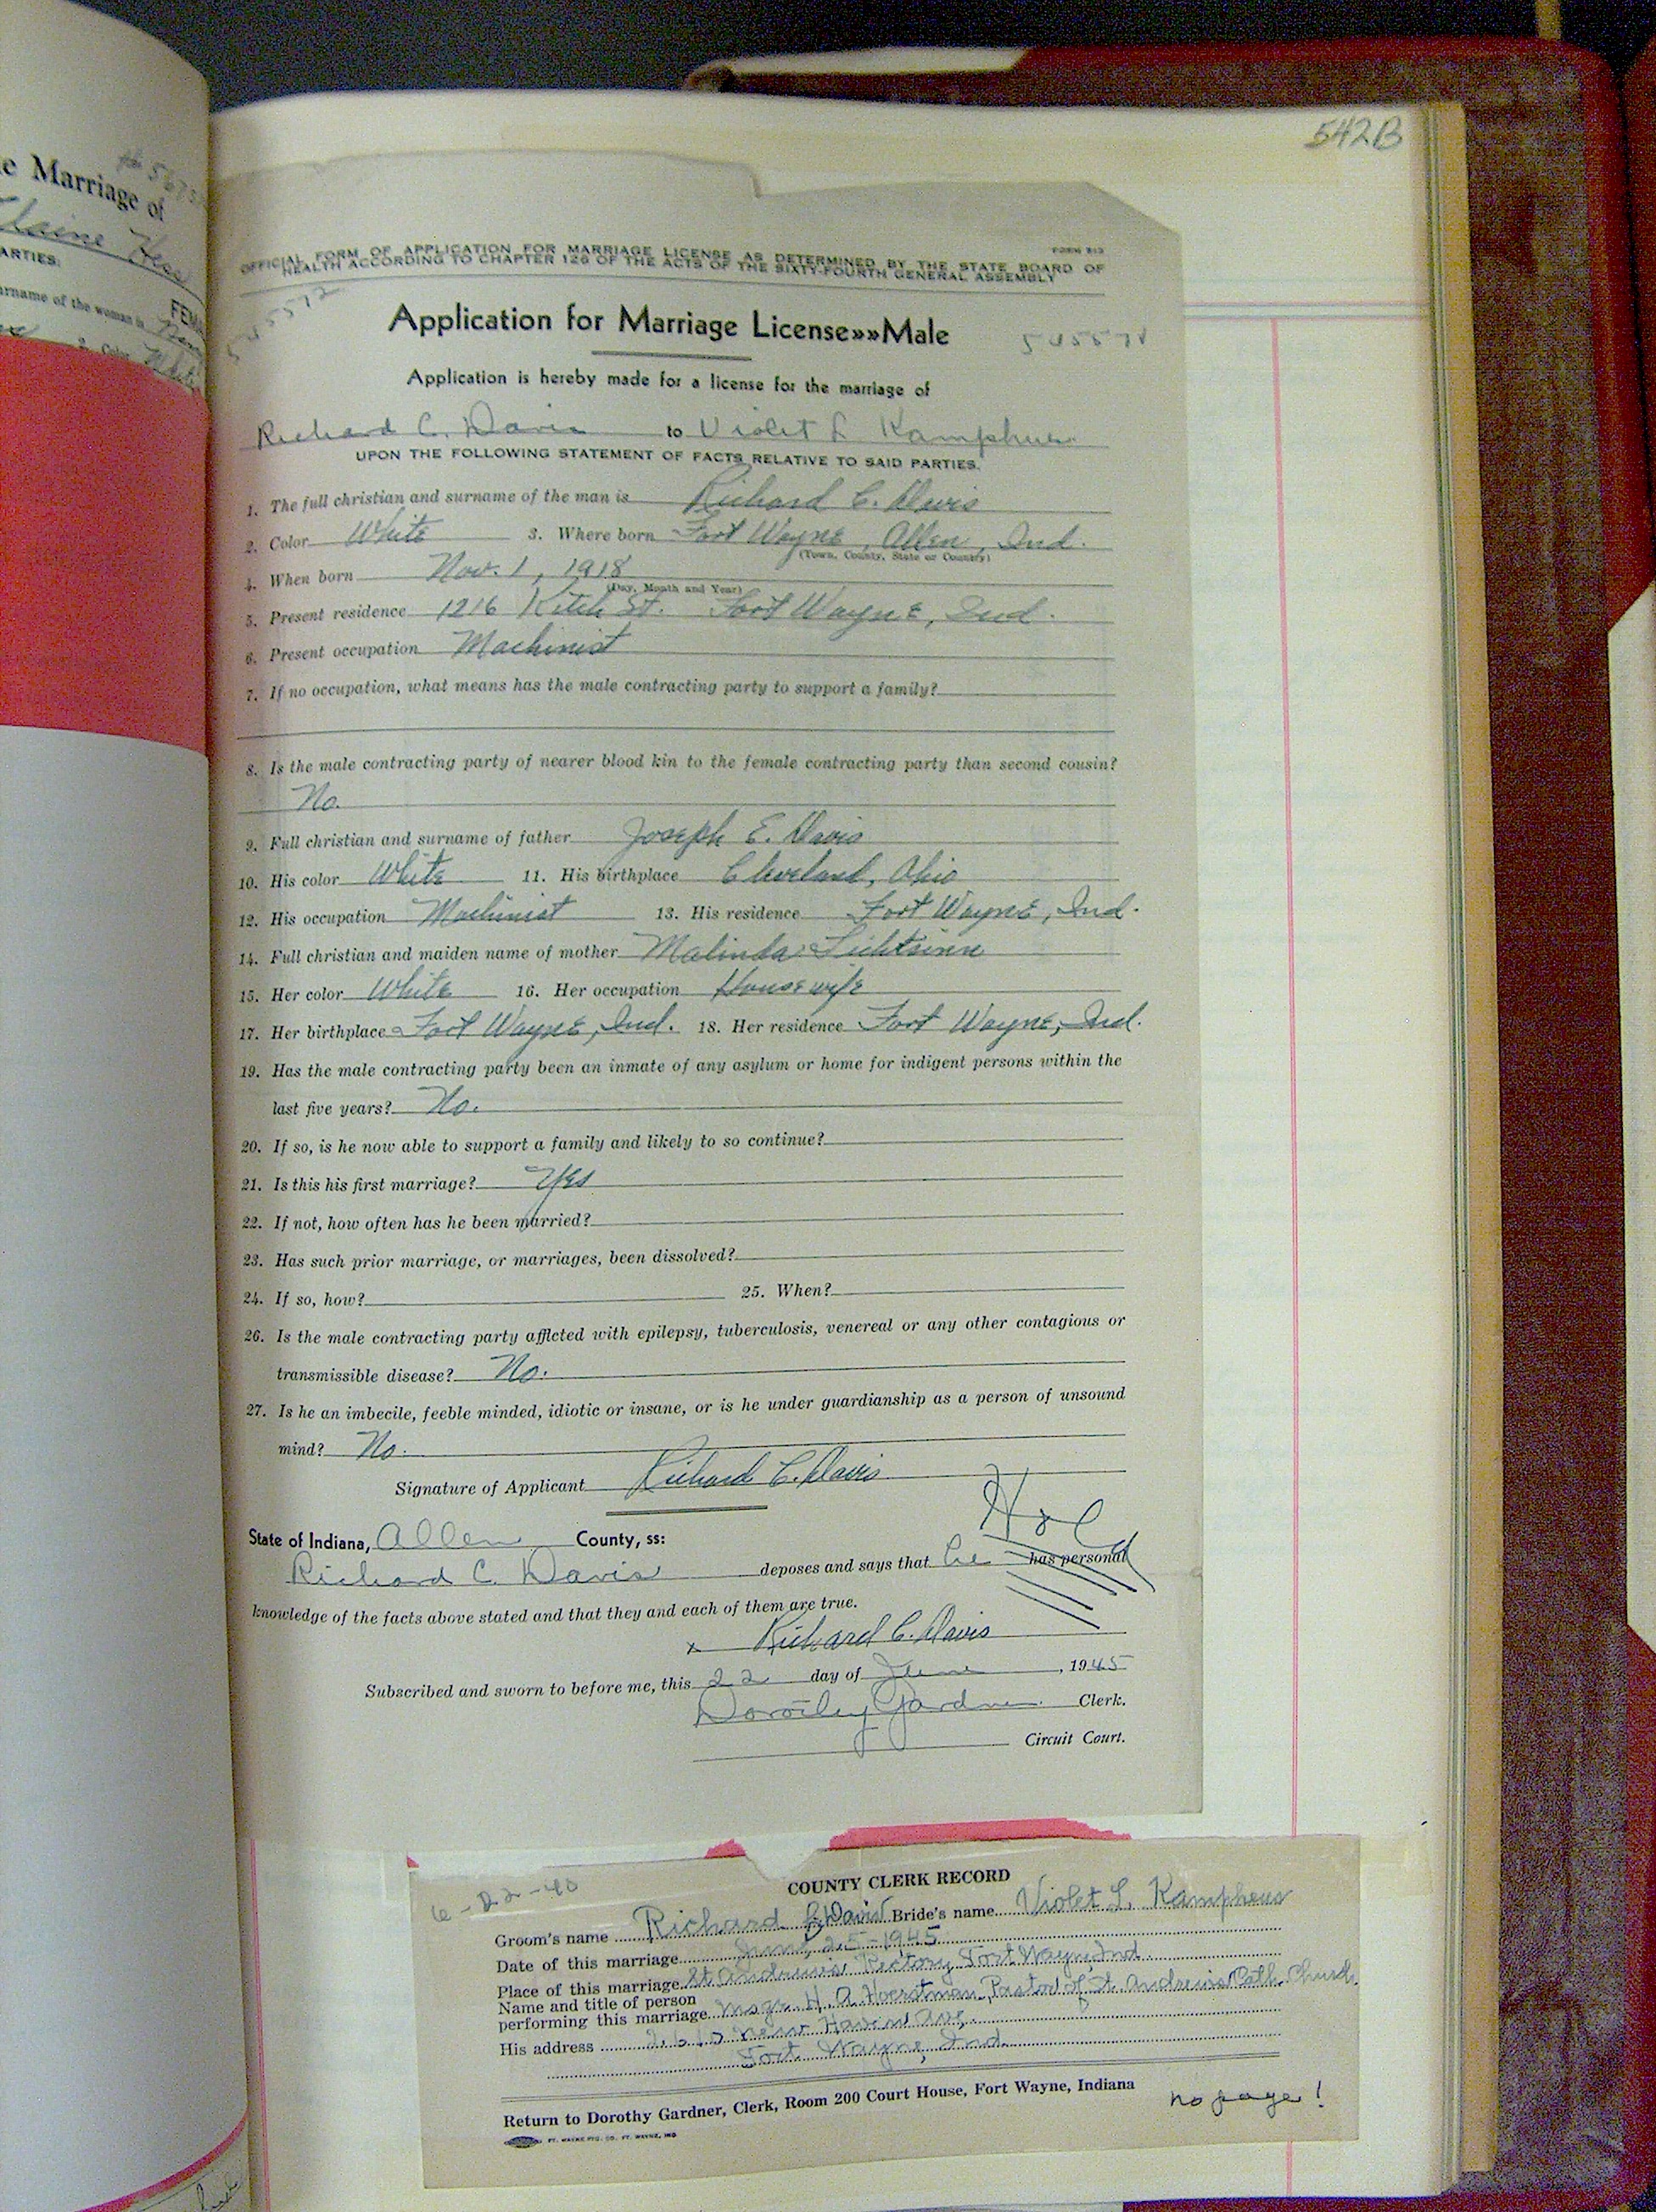 542B
e Marriage of
Elaine
ARTIES.
FEM
urname of the woman is
2. Color White
FORM 813
OFFICIAL FORM OF APPLICATION FOR MARRIAGE LICENSE AS DETERMINED BY THE STATE BOARD OF
HEALTH ACCORDING TO CHAPTER 126 OF THE ACTS OF THE SIXTY-FOURTH GENERAL ASSEMBLY
Application for Marriage License»»Male
Application is hereby made for a license for the marriage of
Richard C. Davis to Violet L. Kampheus
UPON THE FOLLOWING STATEMENT OF FACTS RELATIVE TO SAID PARTIES.
1. The full christian and surname of the man is Richard C. Davis
2. Color White 3. Where born Fort Wayne, Allen, Ind.
(Town, County, State or Country)
4. When born Nov. 1, 1918
(Day, Month and Year)
5. Present residence 1216 Kitch St. Fort Wayne, Ind.
6. Present occupation Machinist
7. If no occupation, what means has the male contracting party to support a family?
8. Is the male contracting party of nearer blood kin to the female contracting party than second cousin?
No.
9. Full christian and surname of father Joseph E. Davis
10. His color White 11. His birthplace Cleveland, Ohio
12. His occupation Machinist 13. His residence Fort Wayne, Ind.
14. Full christian and maiden name of mother Malinda Lichtsinn
15. Her color White 16. Her occupation Housewife
17. Her birthplace Fort Wayne, Ind. 18. Her residence Fort Wayne, Ind.
19. Has the male contracting party been an inmate of any asylum or home for indigent persons within the
last five years? No.
20. If so, is he now able to support a family and likely to so continue?
21. Is this his first marriage? Yes
22. If not, how often has he been married?
23. Has such prior marriage, or marriages, been dissolved?
24. If so, how? 25. When?
26. Is the male contracting party afflcted with epilepsy, tuberculosis, venereal or any other contagious or
transmissible disease? No.
27. Is he an imbecile, feeble minded, idiotic or insane, or is he under guardianship as a person of unsound
mind? No.
Signature of Applicant Richard C. Davis
State of Indiana, Allen County, ss:
Richard C. Davis deposes and says that he has personal
knowledge of the facts above stated and that they and each of them are true.
x Richard C. Davis
Subscribed and sworn to before me, this 22 day of June, 1945
Dorothy Gardner Clerk.
Circuit Court.
6-22-40
COUNTY CLERK RECORD
Groom's name Richard C. Davis Bride's name Violet L. Kampheus
Date of this marriage June, 25-1945
Place of this marriage St Andrews Rectory Fort Wayne, Ind.
Name and title of person
performing this marriage Msgr. H. A. Hoerstman, Pastor of St. Andrews Cath. Church.
His address 2610 New Haven Ave.
Fort Wayne, Ind.
Return to Dorothy Gardner, Clerk, Room 200 Court House, Fort Wayne, Indiana
no page!
FT. WAYNE PTG. CO. FT. WAYNE, IND.